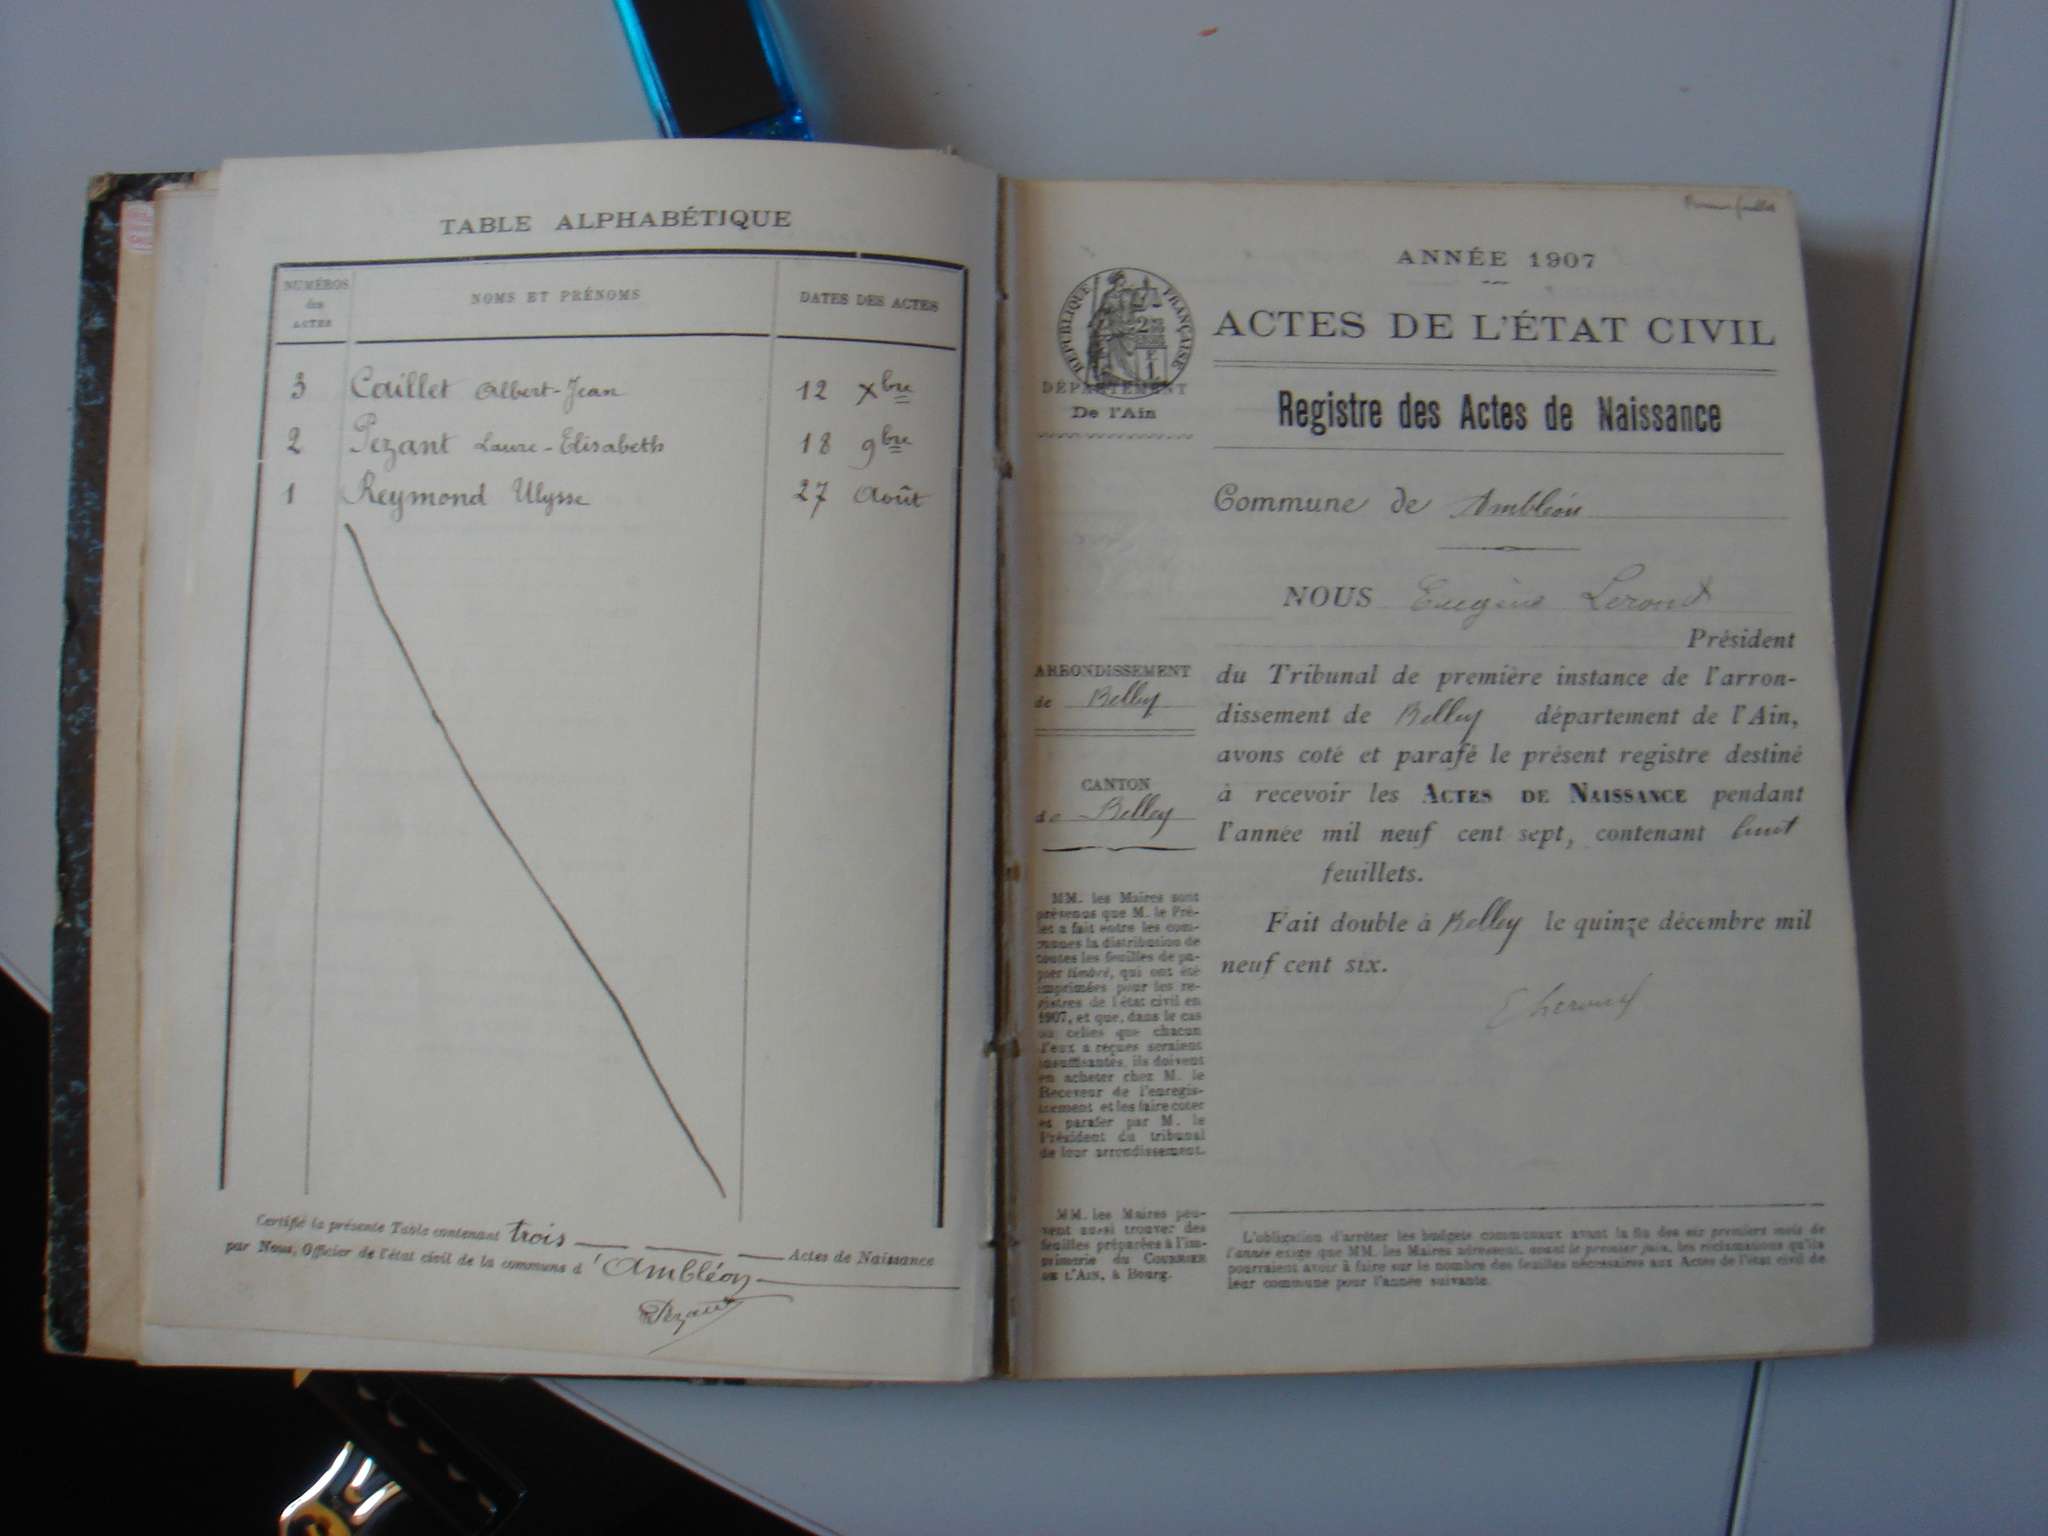 TABLE ALPHABÉTIQUE
NUMÉROS
des
ACTES
NOMS ET PRÉNOMS
DATES DES ACTES
3 Caillet Albert-Jean 12 Xbre
2 Pezant Laure-Elisabeth 18 9bre
1 Reymond Ulysse 27 Août
Certifié la présente Table contenant trois Actes de Naissance
par Nous, Officier de l'état civil de la commune d'Ambléon
Pezant
ANNÉE 1907
RÉPUBLIQUE FRANÇAISE
ACTES DE L'ÉTAT CIVIL
DÉPARTEMENT
De l'Ain
Registre des Actes de Naissance
Commune de Ambléon
NOUS Eugène
Président
ARRONDISSEMENT
de Belley
CANTON
de Belley
du Tribunal de première instance de l'arron-
dissement de Belley département de l'Ain,
avons coté et parafé le présent registre destiné
à recevoir les ACTES DE NAISSANCE pendant
l'année mil neuf cent sept, contenant huit
feuillets.
Fait double à Belley le quinze décembre mil
neuf cent six.
MM. les Maires sont
prévenus que M. le Pré-
fet a fait entre les com-
munes la distribution de
toutes les feuilles de pa-
pier timbré, qui ont été
imprimées pour les re-
gistres de l'état civil en
1907, et que, dans le cas
où celles que chacun
d'eux a reçues seraient
insuffisantes, ils doivent
en acheter chez M. le
Receveur de l'enregis-
trement et les faire coter
et parafer par M. le
Président du tribunal
de leur arrondissement.
MM. les Maires peu-
vent aussi trouver des
feuilles préparées à l'im-
primerie du COURRIER
DE L'AIN, à Bourg.
L'obligation d'arrêter les budgets communaux avant la fin des six premiers mois de
l'année exige que MM. les Maires adressent, avant le premier juin, les réclamations qu'ils
pourraient avoir à faire sur le nombre des feuilles nécessaires aux Actes de l'état civil de
leur commune pour l'année suivante.